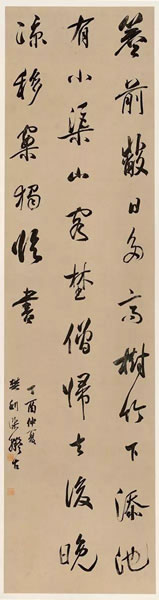 簷前蔽日多高樹竹下添池
有小渠山客埜僧歸去後晚
涼移案獨臨書
丁酉仲夏